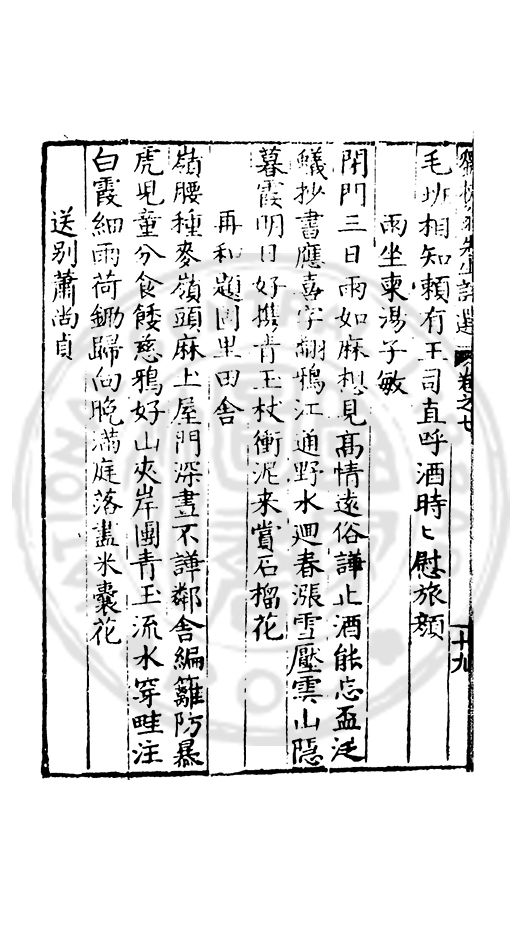 先生詩選 卷之七 十九
毛相知賴有王司直呼酒時〻慰旅顏
雨坐柬湯子敏
閉門三日雨如麻想見髙情遠俗譁止酒能忘盃泛
蟻抄書應喜字翻鴉江通野水廻春漲雪壓雲山隠
暮霞明日好携青玉杖衝泥来賞石榴花
再和題里田舎
嶺腰種麥嶺頭麻上屋門深晝不譁鄰舎編籬防暴
虎児童分食餧慈鴉好山夾岸團青玉流水穿畦注
白霞細雨荷鋤歸向晚滿庭落盡米囊花
送别蕭尚貞